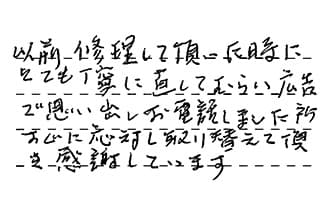 以前修理して頂いた時に
とても丁寧に直してもらい広告
で思い出しお電話しました所
すぐに応対し取り替えて頂
き感謝しています